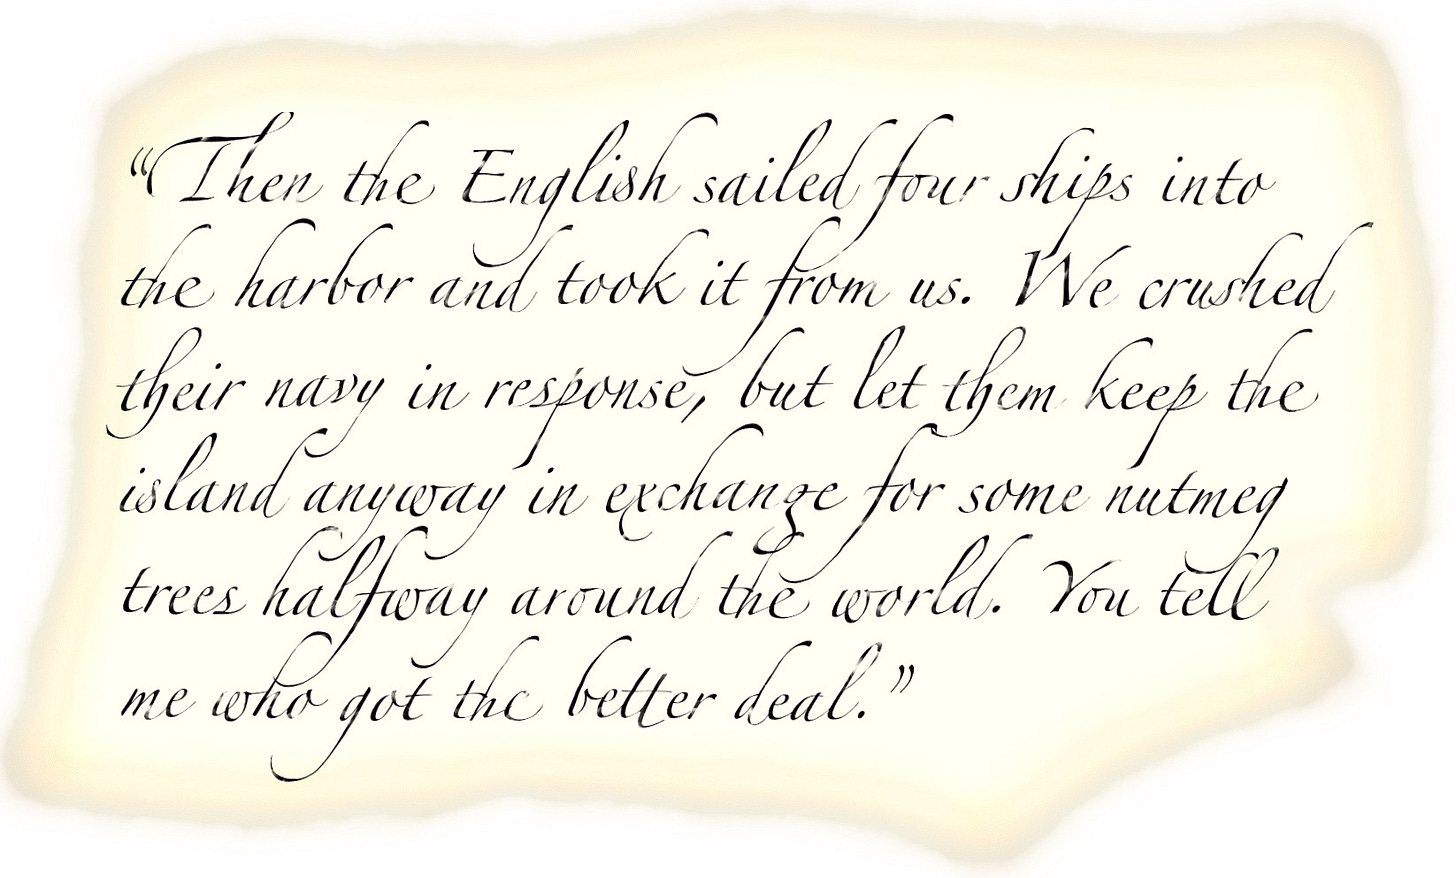 “Then the English sailed four ships into
the harbor and took it from us. We crushed
their navy in response, but let them keep the
island anyway in exchange for some nutmeg
trees halfway around the world. You tell
me who got the better deal.”